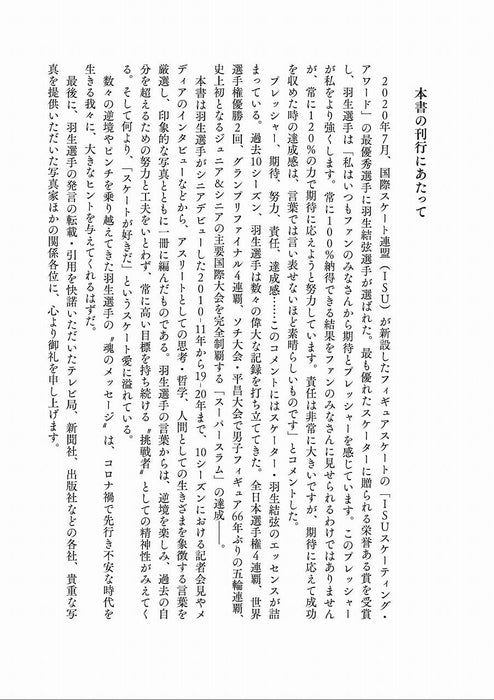 本書の刊行にあたって
　2020年7月、国際スケート連盟（ISU）が新設したフィギュアスケートの「ISUスケーティング・
アワード」の最優秀選手に羽生結弦選手が選ばれた。最も優れたスケーターに贈られる栄誉ある賞を受賞
し、羽生選手は「私はいつもファンのみなさんから期待とプレッシャーを感じています。このプレッシャー
が私をより強くします。常に100％納得できる結果をファンのみなさんに見せられるわけではありません
が、常に120％の力で期待に応えようと努力しています。責任は非常に大きいですが、期待に応えて成功
を収めた時の達成感は、言葉では言い表せないほど素晴らしいものです」とコメントした。
　プレッシャー、期待、努力、責任、達成感……このコメントにはスケーター・羽生結弦のエッセンスが詰
まっている。過去10シーズン、羽生選手は数々の偉大な記録を打ち立ててきた。全日本選手権4連覇、世界
選手権優勝2回、グランプリファイナル4連覇、ソチ大会・平昌大会で男子フィギュア66年ぶりの五輪連覇、
史上初となるジュニア&シニアの主要国際大会を完全制覇する「スーパースラム」の達成――。
　本書は羽生選手がシニアデビューした2010-11年から19-20年まで、10シーズンにおける記者会見やメ
ディアのインタビューなどから、アスリートとしての思考・哲学、人間としての生きざまを象徴する言葉を
厳選し、印象的な写真とともに一冊に編んだものである。羽生選手の言葉からは、逆境を楽しみ、過去の自
分を超えるための努力と工夫をいとわず、常に高い目標を持ち続ける〝挑戦者〟としての精神性がみえてく
る。そして何より、「スケートが好きだ」というスケート愛に溢れている。
　数々の逆境やピンチを乗り越えてきた羽生選手の〝魂のメッセージ〟は、コロナ禍で先行き不安な時代を
生きる我々に、大きなヒントを与えてくれるはずだ。
　最後に、羽生選手の発言の転載・引用を快諾いただいたテレビ局、新聞社、出版社などの各社、貴重な写
真を提供いただいた写真家ほかの関係各位に、心より御礼を申し上げます。